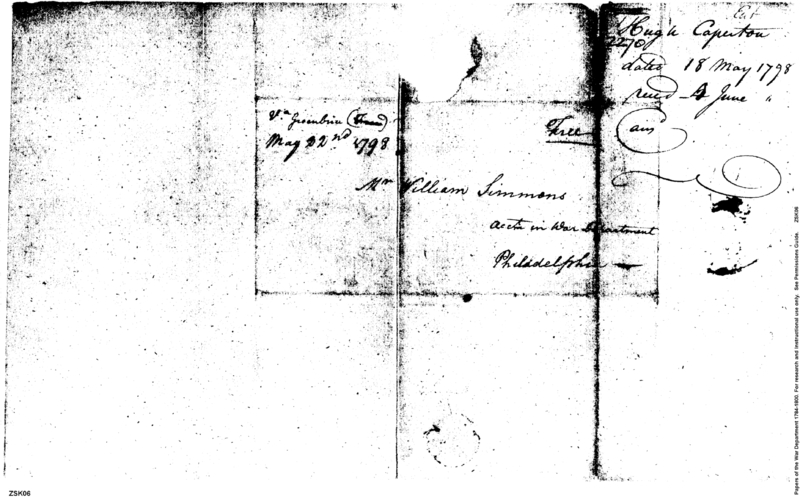 Hugh Caperton
2270
dated 18 May 1798
recd 4 June "
Va Greenbrier
May 22nd 1798
Free
ans
Mr William Simmons
Acctn in War Department
Philadelphia
Papers of the War Department 1784-1800. For research and instructional use only. See Permissions Guide. ZSK06
ZSK06